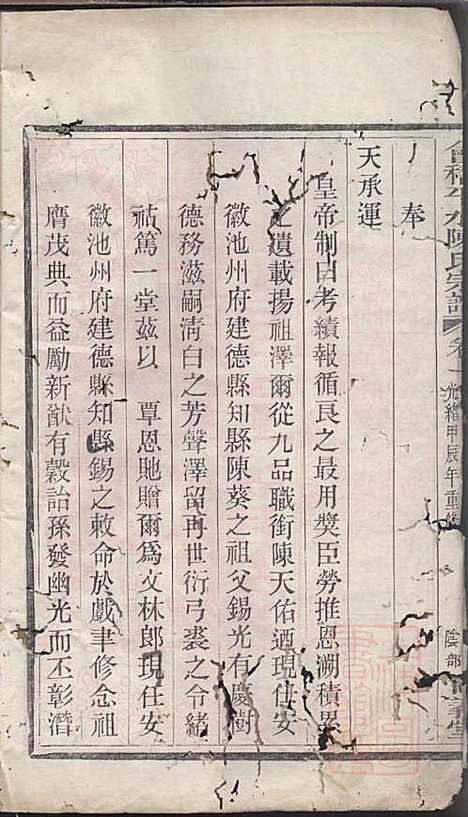 會稽平水陳氏宗譜 卷一 光緒甲辰年重修
奉
天承運
皇帝制曰考績報循良之最用奬臣勞推恩溯積累
之遺載揚祖澤爾從九品職銜陳天佑迺現任安
徽池州府建德縣知縣陳葵之祖父錫光有慶樹
德務滋嗣清白之芳聲澤留再世衍弓裘之令緒
祜篤一堂茲以 覃恩貤贈爾爲文林郎現任安
徽池州府建德縣知縣錫之敕命於戲聿修念祖
膺茂典而益勵新猷有穀詒孫發幽光而丕彰潛